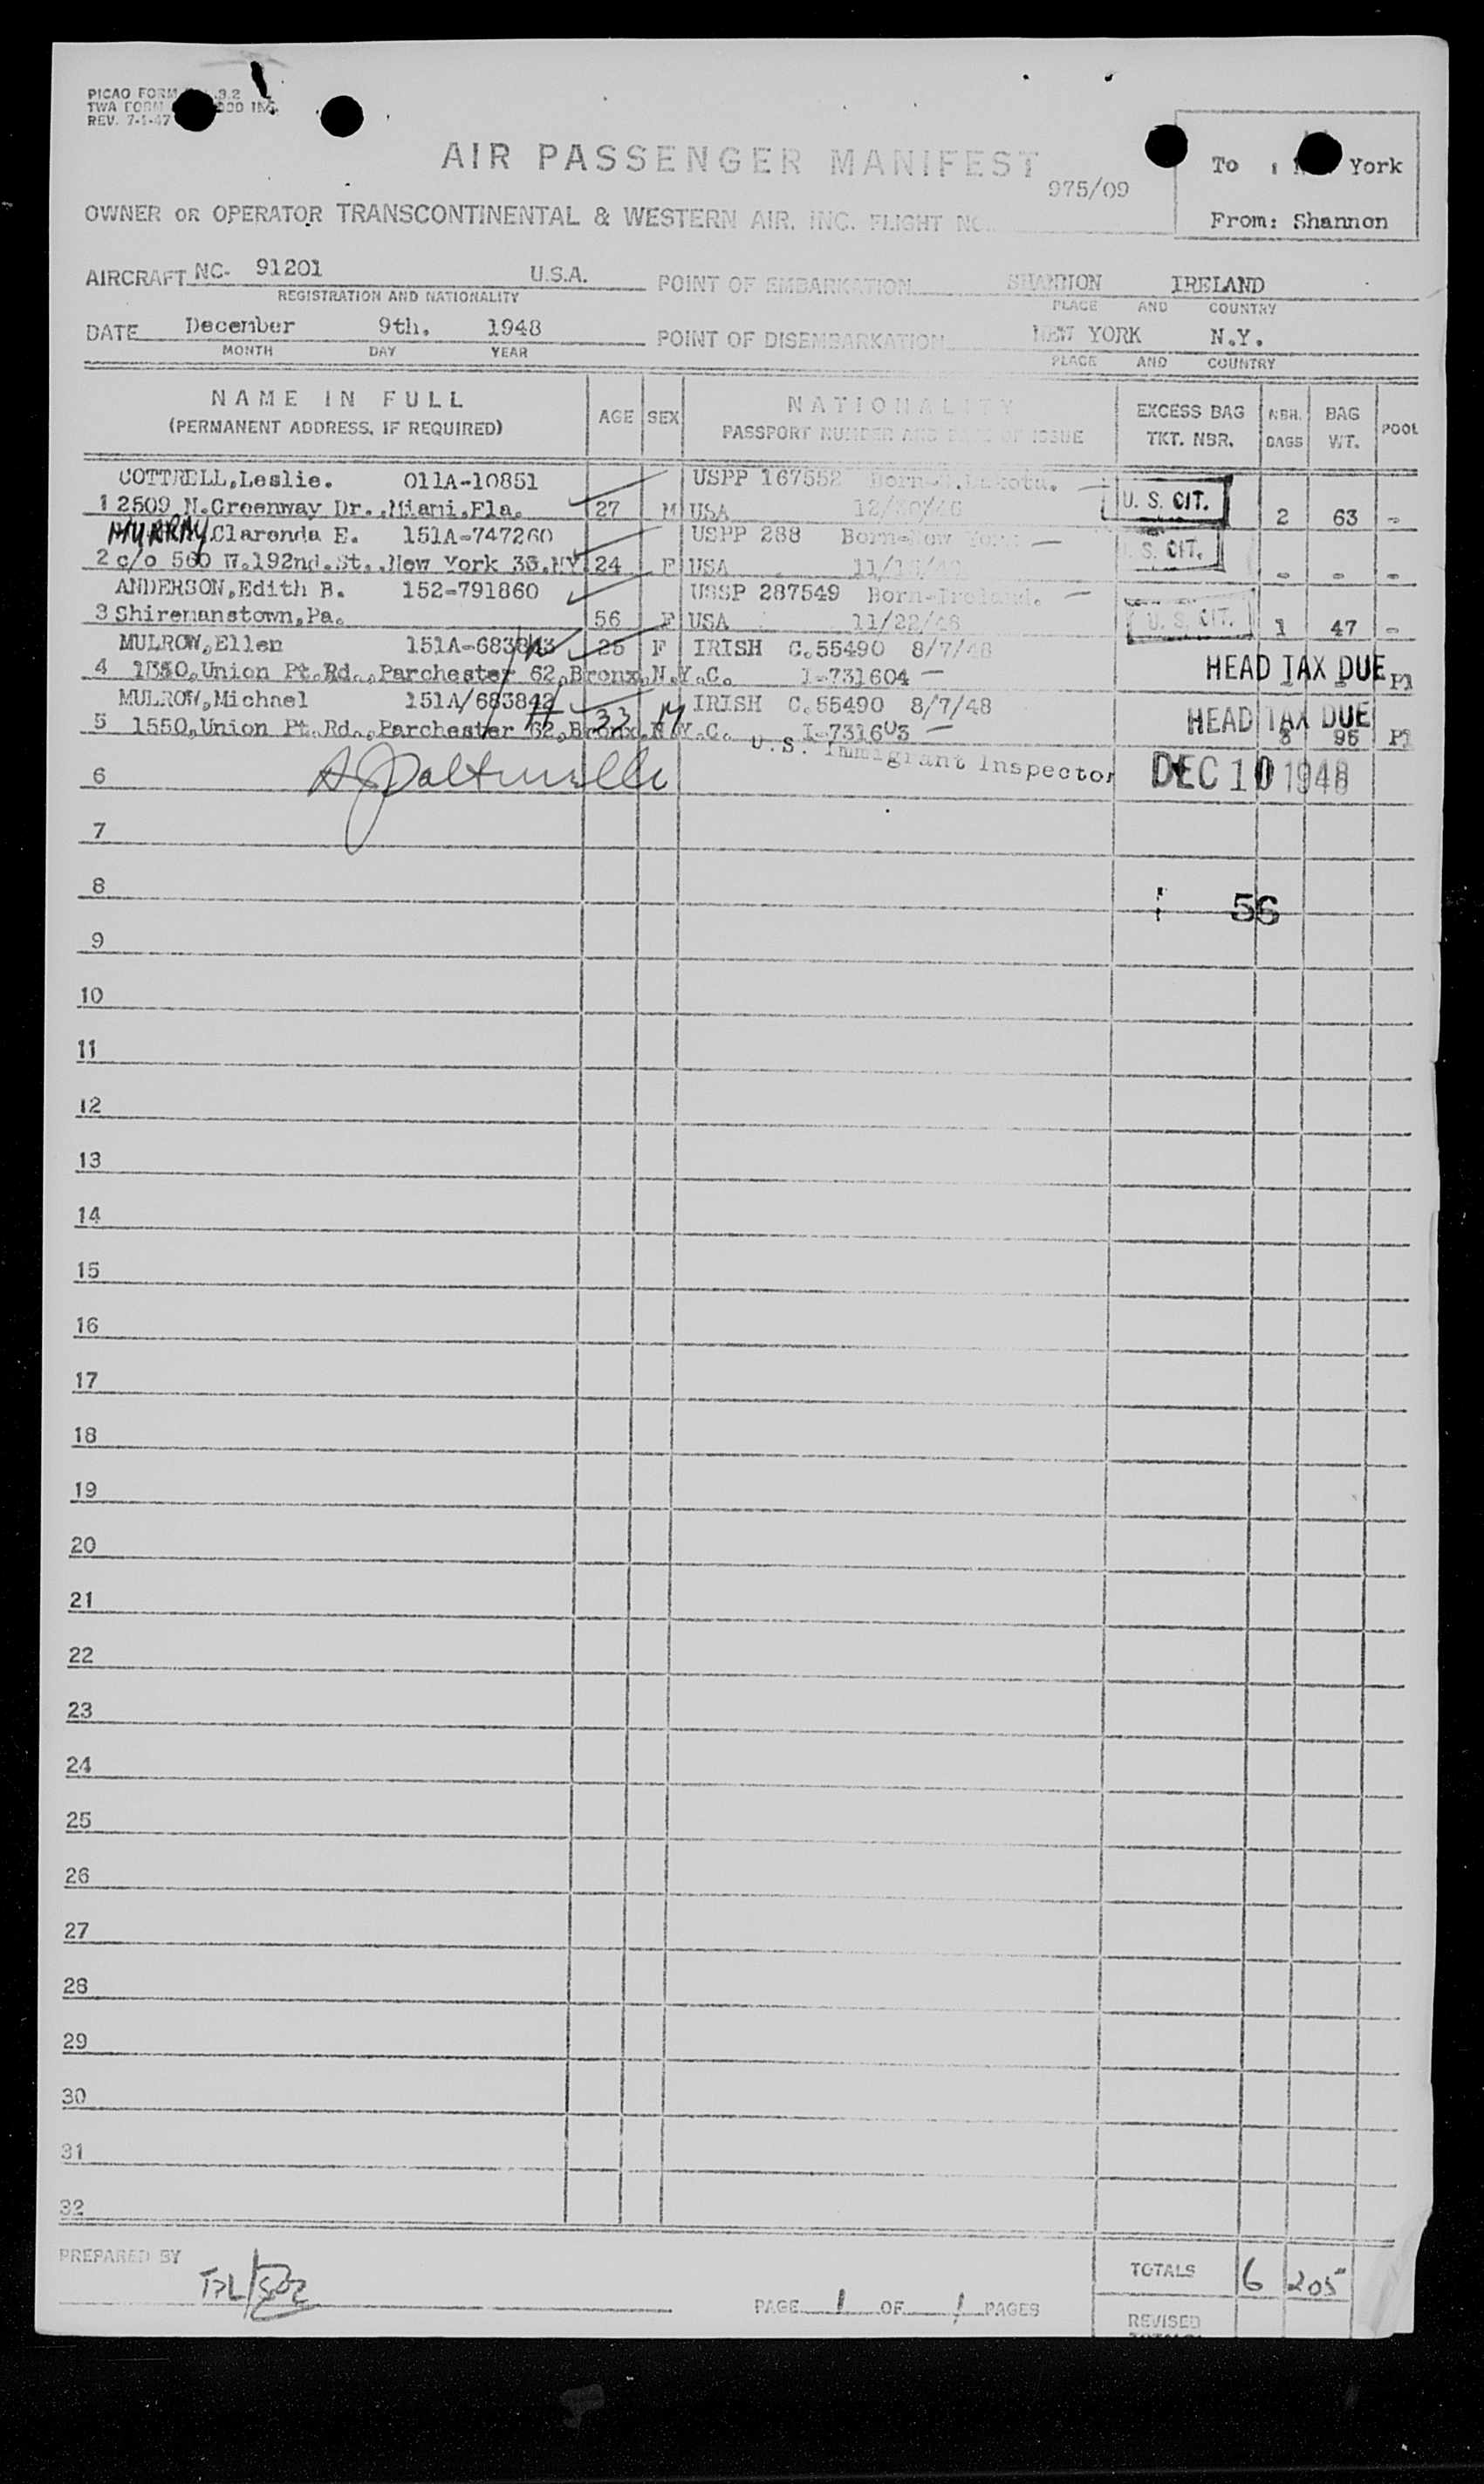 PICAO FORM 9.2
TWA FORM
REV. 7-1-47
AIR PASSENGER MANIFEST
975/09
To : York
From: Shannon
OWNER OR OPERATOR TRANSCONTINENTAL & WESTERN AIR, INC. FLIGHT NO.
AIRCRAFT NC- 91201 U.S.A. POINT OF EMBARKATION SHANNON IRELAND
REGISTRATION AND NATIONALITY PLACE AND COUNTRY
DATE December 9th, 1948 POINT OF DISEMBARKATION NEW YORK N.Y.
MONTH DAY YEAR PLACE AND COUNTRY
NAME IN FULL AGE SEX NATIONALITY EXCESS BAG NBR. BAG POOL
(PERMANENT ADDRESS, IF REQUIRED) PASSPORT NUMBER AND DATE OF ISSUE TKT. NBR. BAGS WT.
COTTRELL,Leslie. 011A-10851 USPP 167552 Born-N.Dakota.
1 2509 N.Greenway Dr.,Miami,Fla. 27 M USA U. S. CIT. 2 63 -
MURRAY,Clarenda E. 151A-747260 USPP 288 Born-New York
2 c/o 560 W.192nd.St.,New York 33,NY. 24 F USA U. S. CIT. - - -
ANDERSON,Edith B. 152-791860 USSP 287549 Born-Ireland.
3 Shiremanstown,Pa. 56 F USA 11/22/48 U. S. CIT. 1 47 -
MULROW,Ellen 151A-683843 25 F IRISH C.55490 8/7/48
4 1550,Union Pt.Rd.,Parchester 62,Bronx,N.Y.C. I-731604 HEAD TAX DUE Pl
MULROW,Michael 151A/683842 33 M IRISH C.55490 8/7/48
5 1550,Union Pt.Rd.,Parchester 62,Bronx,N.Y.C. I-731603 HEAD TAX DUE 3 95 Pl
6 U.S. Immigrant Inspector DEC 10 1948
7
8 56
9
10
11
12
13
14
15
16
17
18
19
20
21
22
23
24
25
26
27
28
29
30
31
32
PREPARED BY
TOTALS 6 205
PAGE 1 OF 1 PAGES
REVISED